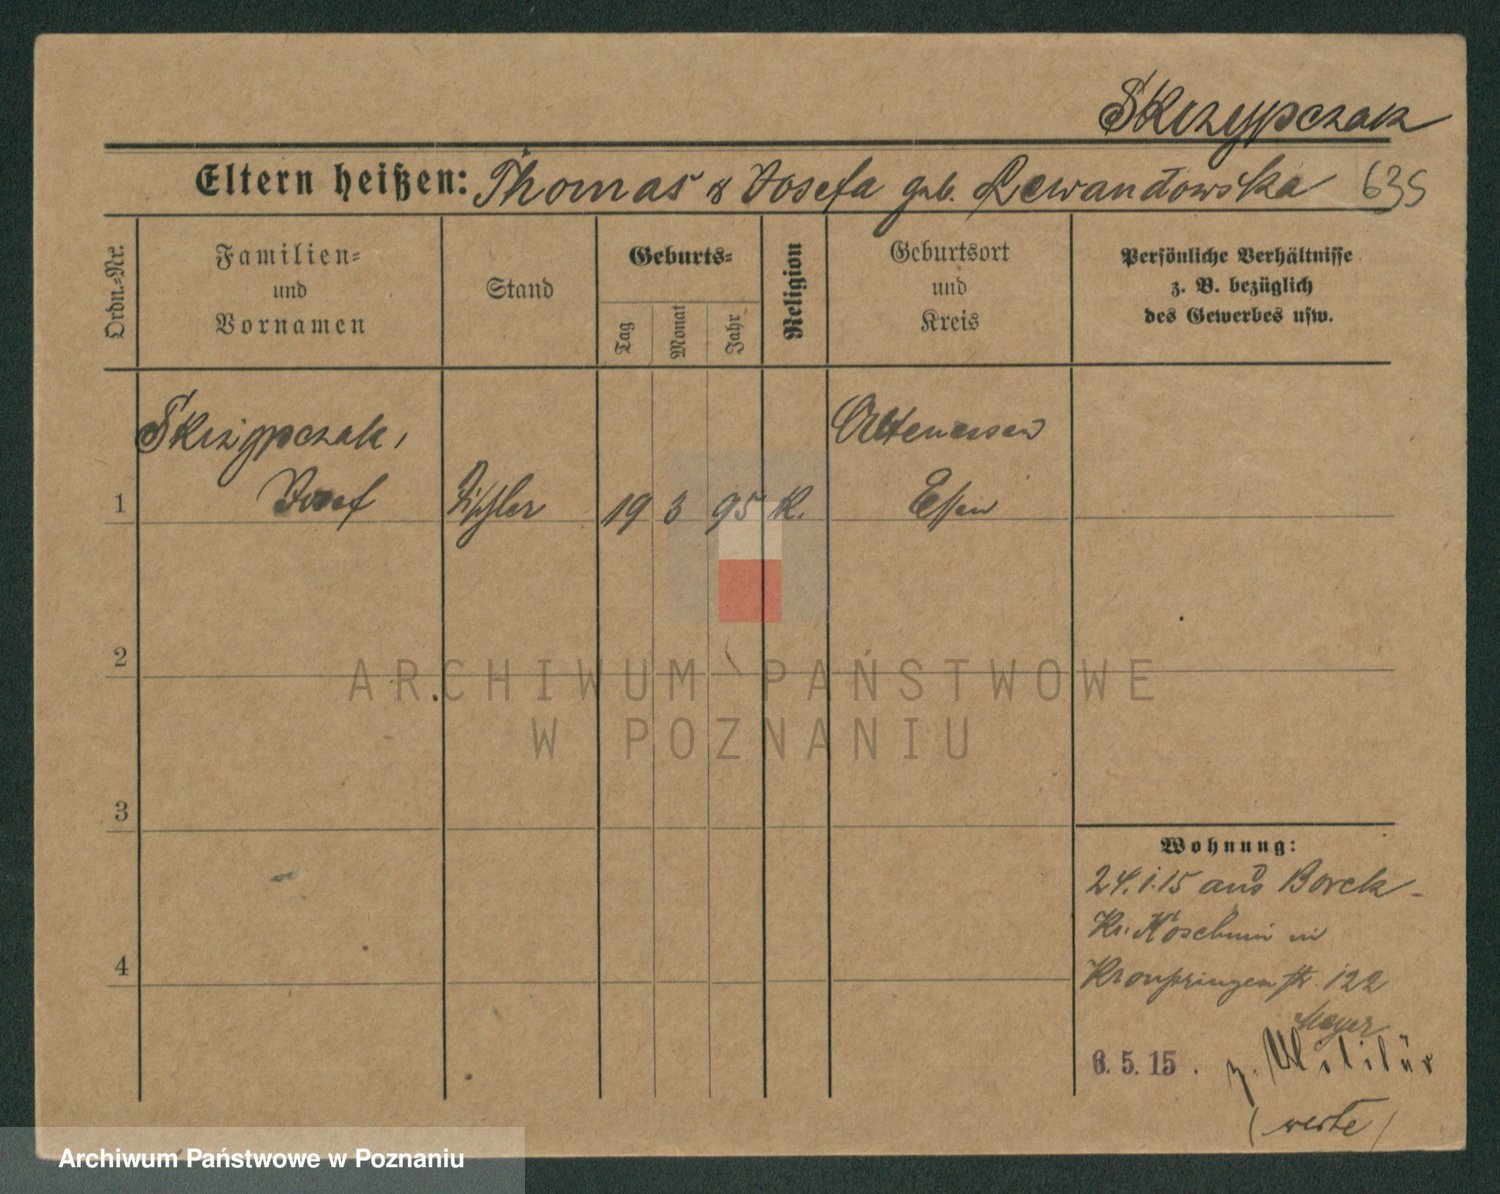 Skrzypczak
Eltern heißen: Thomas & Josefa geb. Lewandowska 635
Ordn.-Nr.
Familien-
und
Vornamen
Stand
Geburts-
Tag
Monat
Jahr
Religion
Geburtsort
und
Kreis
Persönliche Verhältnisse
z. B. bezüglich
des Gewerbes usw.
Skrzypczak,
Altenessen
1 Josef Tischler 19 3 95 K. Essen
2
ARCHIWUM PAŃSTWOWE
W POZNANIU
3
Wohnung:
24.1.15 aus Borek
Kr. Koschmin in
4
Kronprinzenstr. 122
Meyer
6. 5. 15. z. Militär
Archiwum Państwowe w Poznaniu